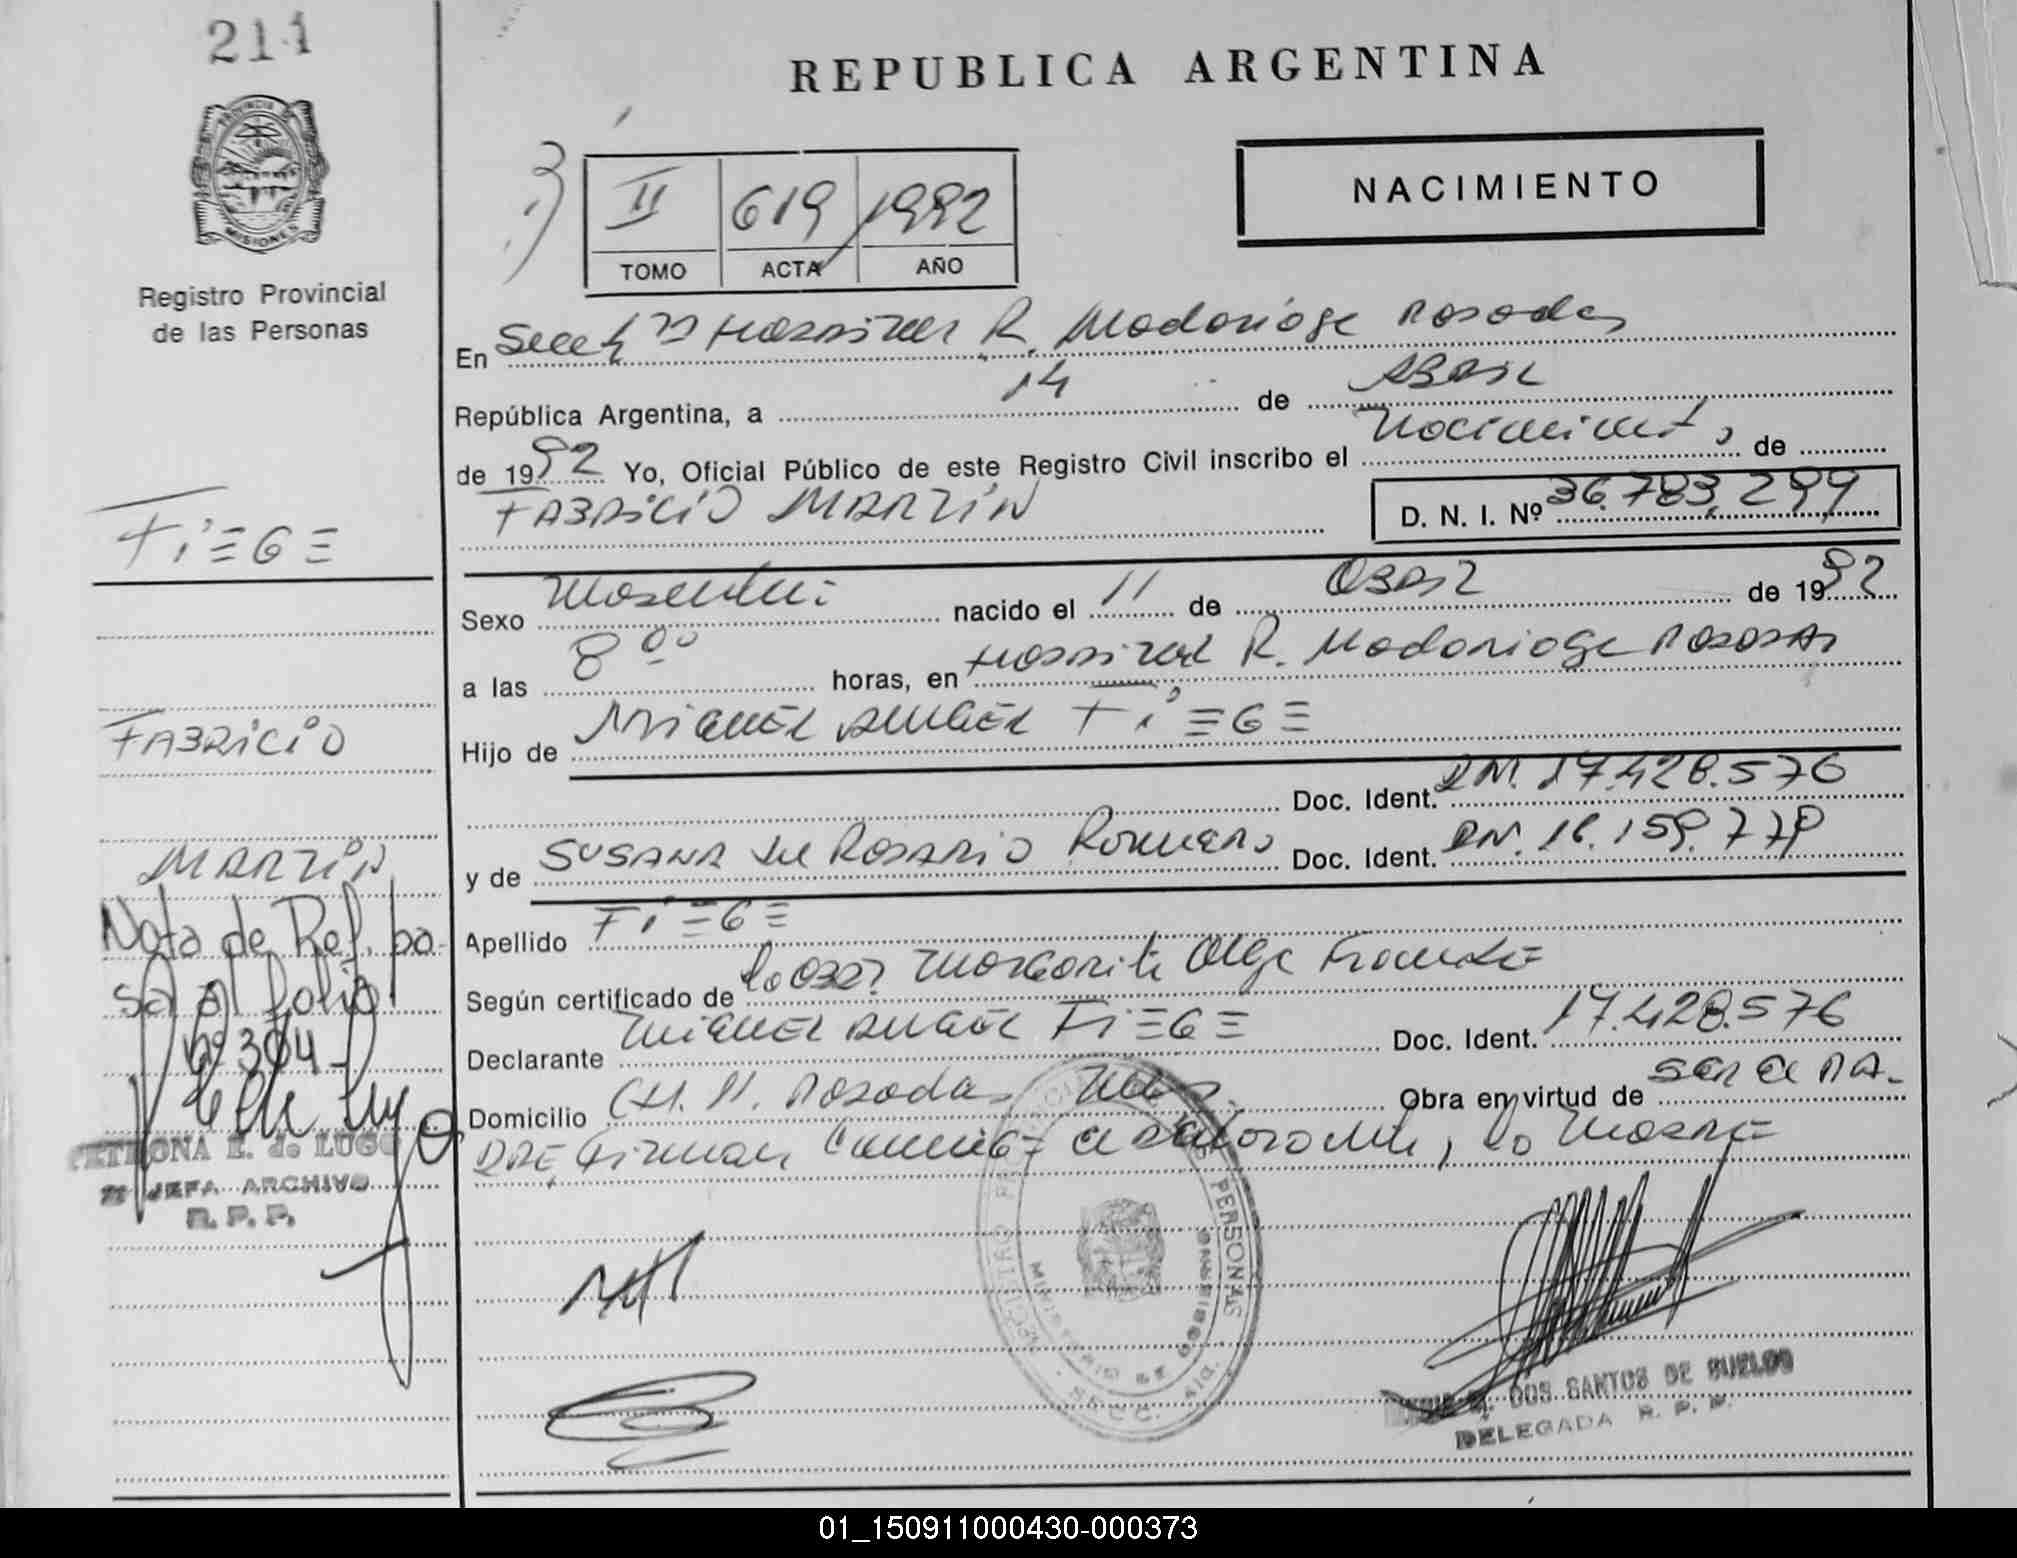 211
REPUBLICA ARGENTINA
NACIMIENTO
II 619 1992
TOMO ACTA AÑO
PROVINCIA DE MISIONES
Registro Provincial
de las Personas
En Secc Hospital R. Madariaga Posadas
República Argentina, a 14 de Abril
de 1992 Yo, Oficial Público de este Registro Civil inscribo el Nacimiento de
FABRICIO MARTIN
D. N. I. Nº 36.783.299
FIEGE
Sexo Masculino nacido el 11 de Abril de 1992
a las 8 00 horas, en Hospital R. Madariaga Posadas
FABRICIO
Hijo de MIGUEL ANGEL FIEGE
Doc. Ident. DNI. 17.428.576
MARTIN
y de SUSANA del ROSARIO ROMERO Doc. Ident. DNI. 16.159.779
Nota de Ref. pa
sa al folio
nº 304
Apellido FIEGE
Según certificado de Margarita Olga
Declarante MIGUEL ANGEL FIEGE Doc. Ident. 17.428.576
Domicilio Posadas Obra en virtud de ser el PA-
DRE Firman el declarante, la MADRE
PETRONA E. de LUGO
JEFA ARCHIVO
R. P. P.
REGISTRO PERSONAS
MINISTERIO DE GOBIERNO
DOS SANTOS DE SUELDO
DELEGADA R. P. P.
01_150911000430-000373